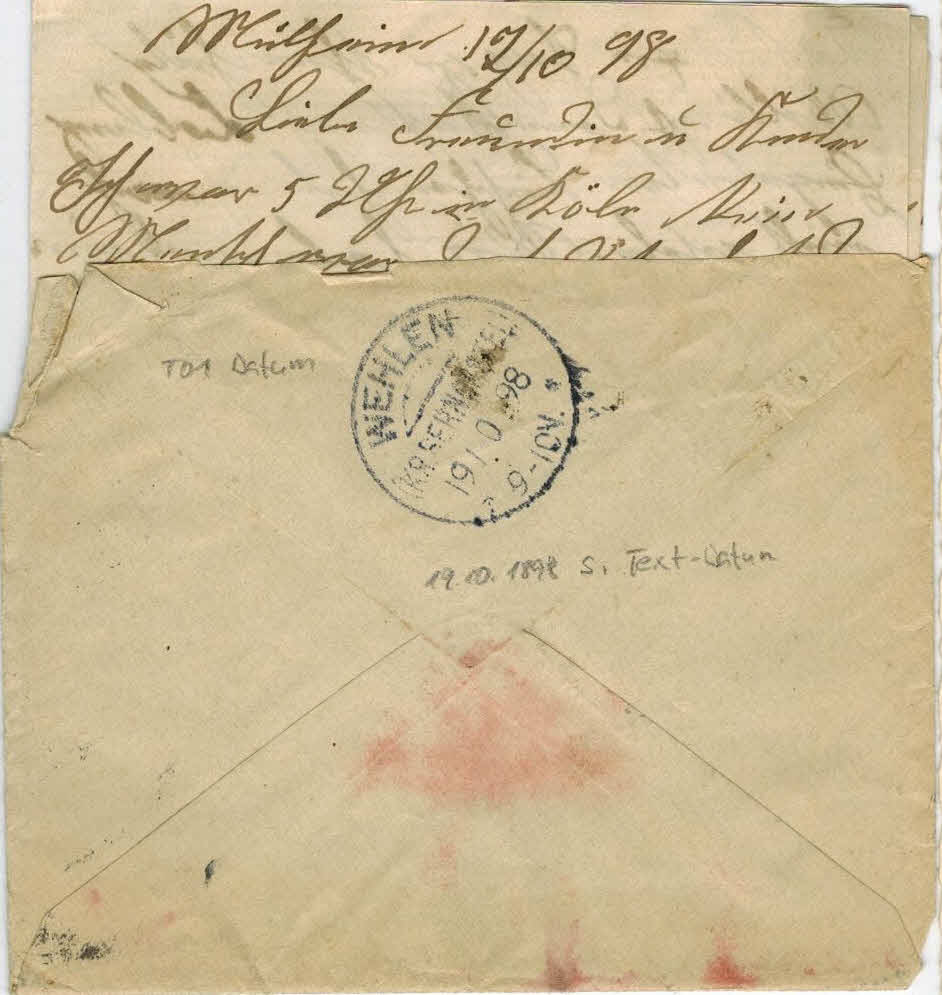 Mülheim 17/10 98
Liebe Freundin u Kinder
Ich war 5 Uhr in Köln Mein
war
WEHLEN
(KR. BERNCASTEL)
19 10 98
9-10V.
TO1 Datum
19.10.1898 s. Text-Datum